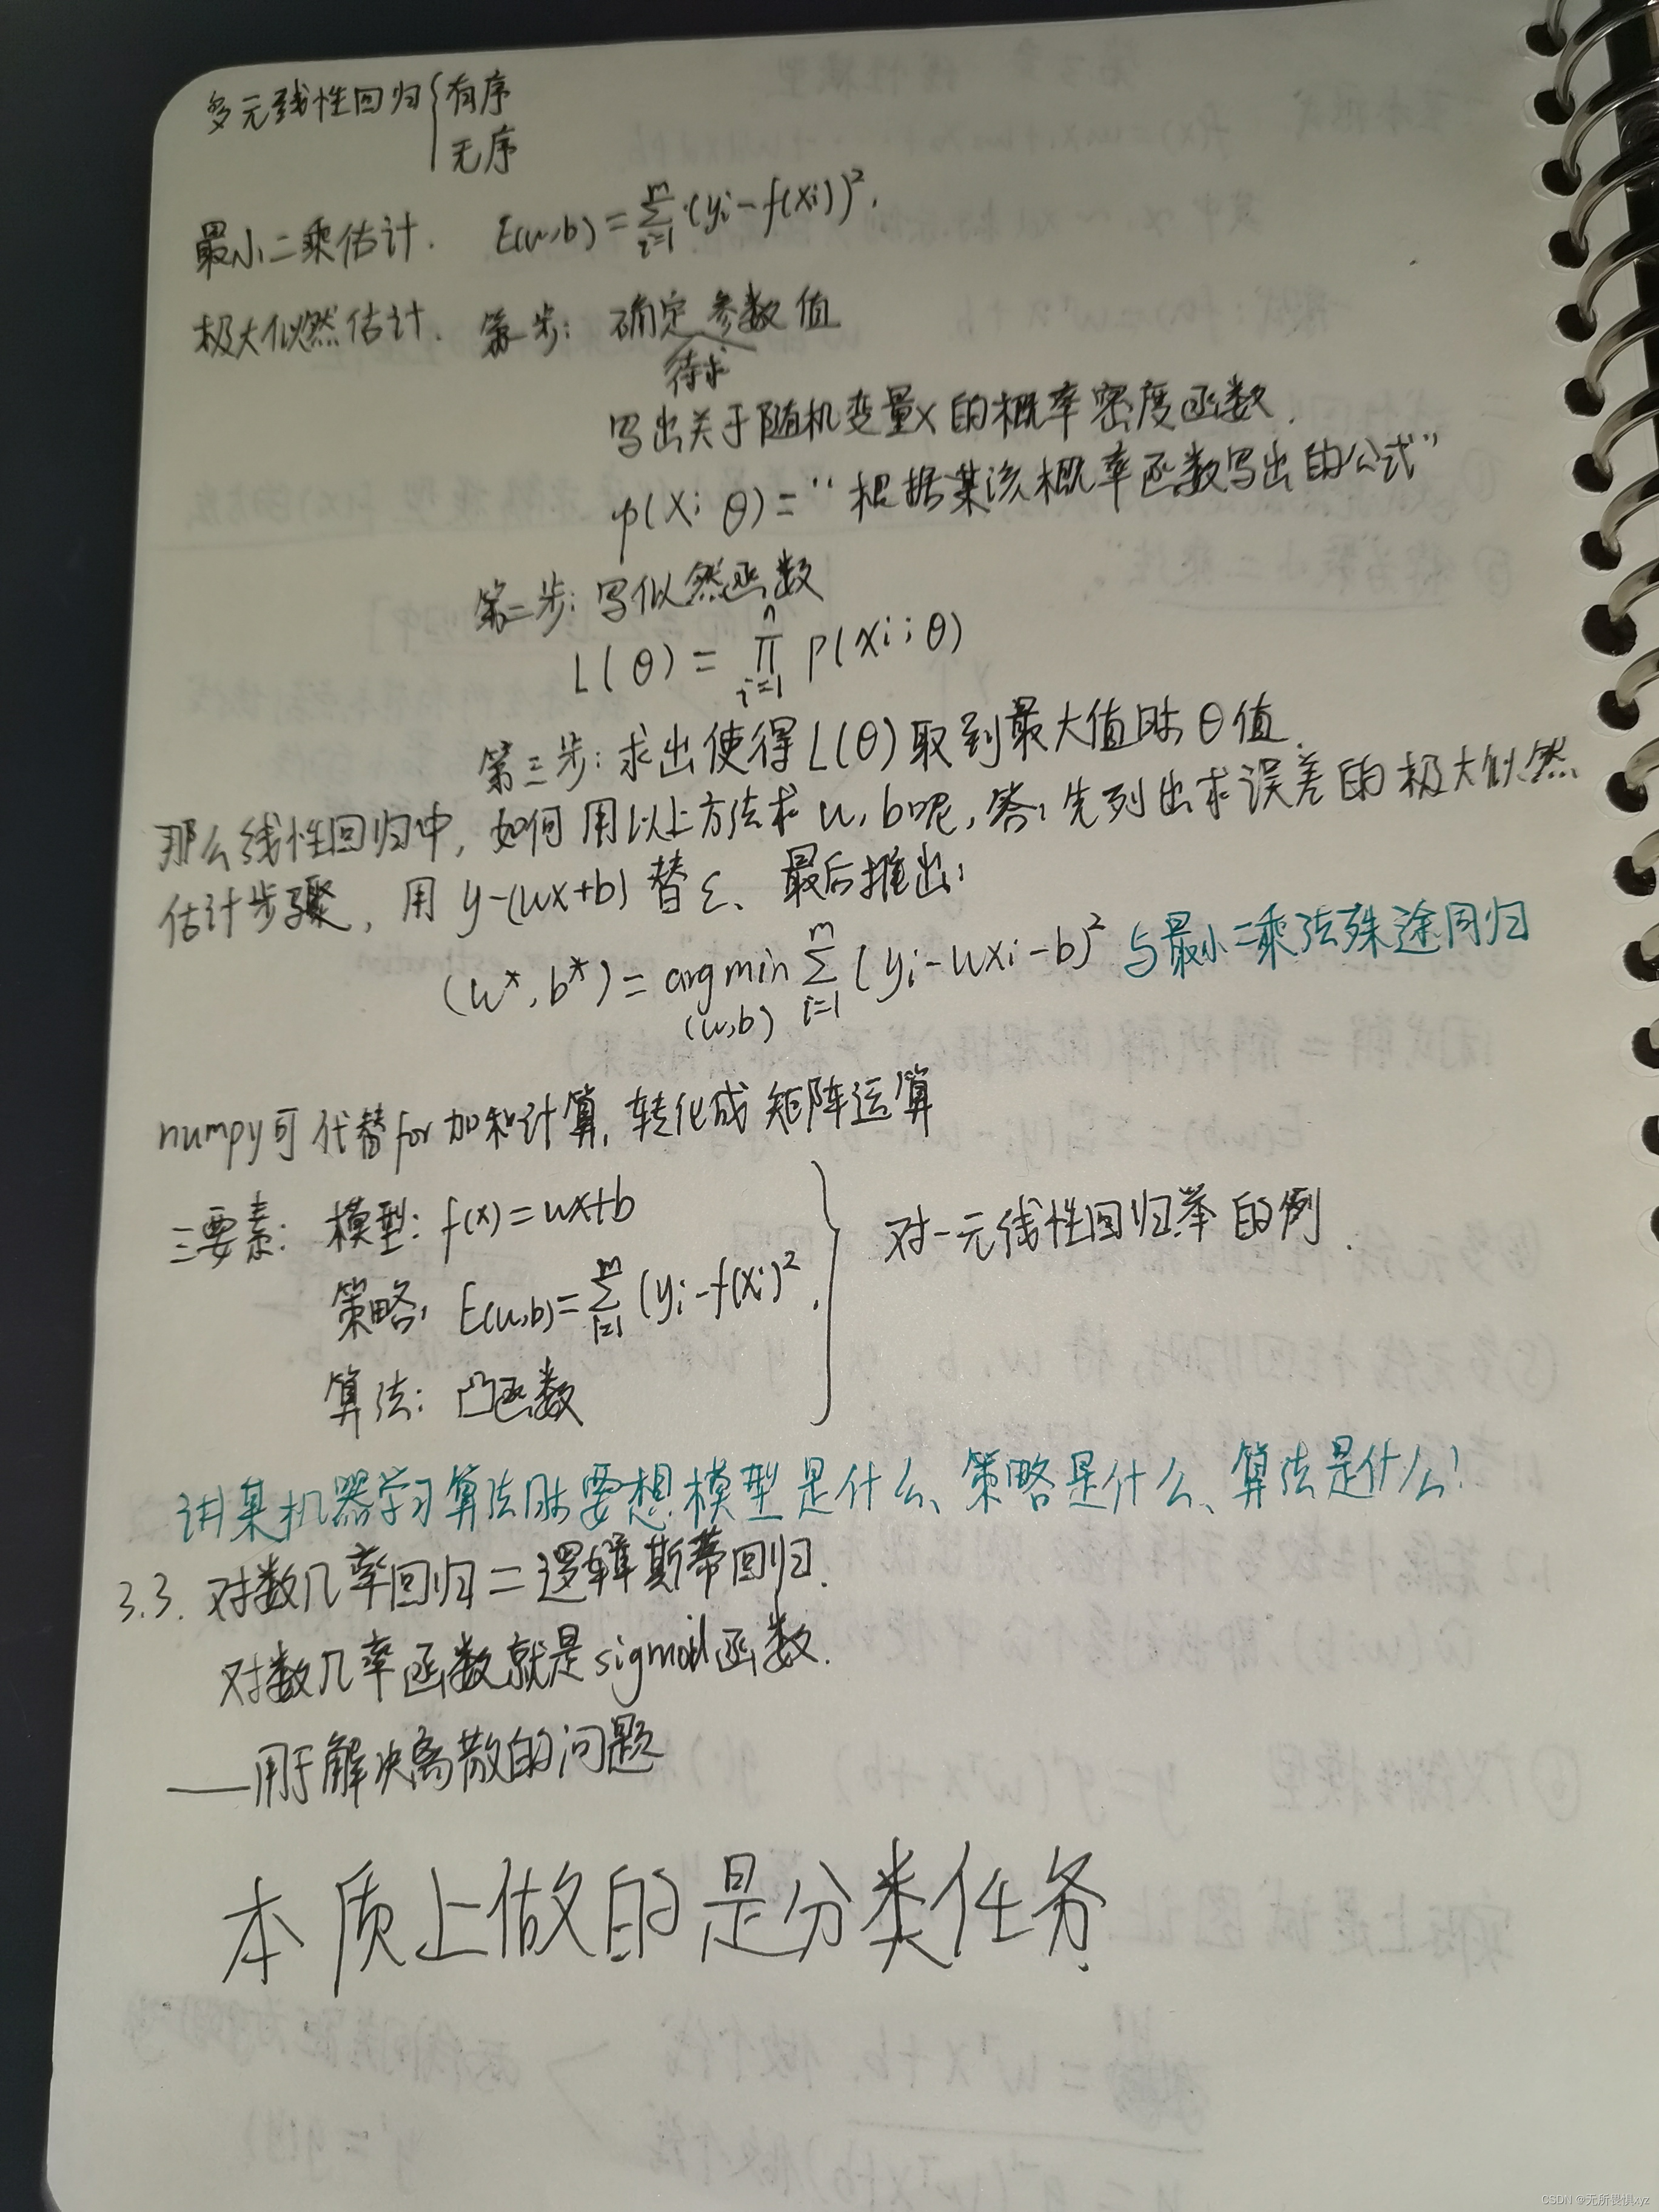 多元线性回归 { 有序
无序
最小二乘估计. E(w,b) = ∑_{i=1}^{m} (yi - f(xi))².
极大似然估计. 第一步: 确定参数值
待求
写出关于随机变量x的概率密度函数.
p(x; θ) = “根据某该概率函数写出的公式”
第二步: 写似然函数
L(θ) = ∏_{i=1}^{n} p(xi; θ)
第三步: 求出使得L(θ)取到最大值时θ值.
那么线性回归中, 如何用以上方法求w, b呢, 答: 先列出求误差的极大似然
估计步骤, 用 y-(wx+b) 替ε、最后推出:
(w*, b*) = arg min_{(w,b)} ∑_{i=1}^{m} (yi - wxi - b)² 与最小二乘法殊途同归
numpy可代替for加和计算, 转化成矩阵运算
三要素: 模型: f(x) = wx+b
策略: E(w,b) = ∑_{i=1}^{m} (yi - f(xi)². } 对一元线性回归举的例.
算法: 凸函数
讲某机器学习算法时要想模型是什么、策略是什么、算法是什么!
3.3. 对数几率回归 = 逻辑斯蒂回归.
对数几率函数就是sigmoid函数.
——用于解决离散的问题
本质上做的是分类任务
CSDN @无所畏惧xyz